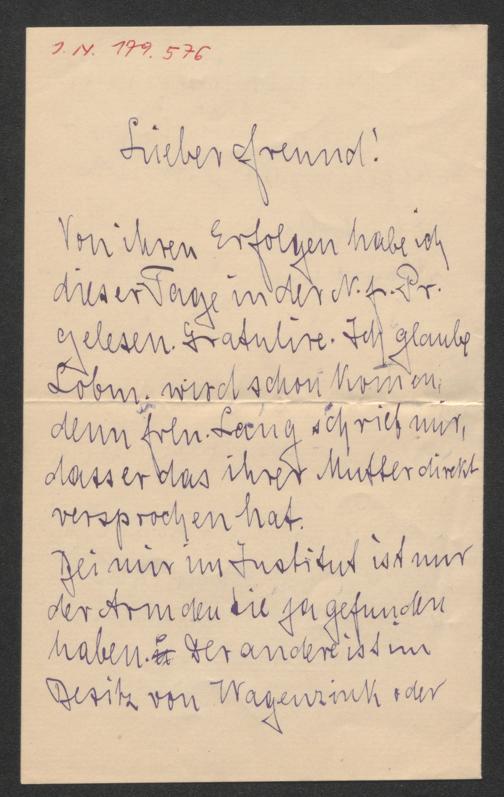 J.N. 179.576
Lieber Freund!
Von ihren Erfolgen habe ich
dieser Tage in der N. fr. Pr.
gelesen. Gratulire. Ich glaube
Lobm. wird schon komen,
denn frln. Lang schrieb mir,
dass er das ihrer Mutter direkt
versprochen hat.
Bei mir im Institut ist nur
der Arm den sie ja gefunden
haben. Der andere ist im
Besitz von Wagenzink oder